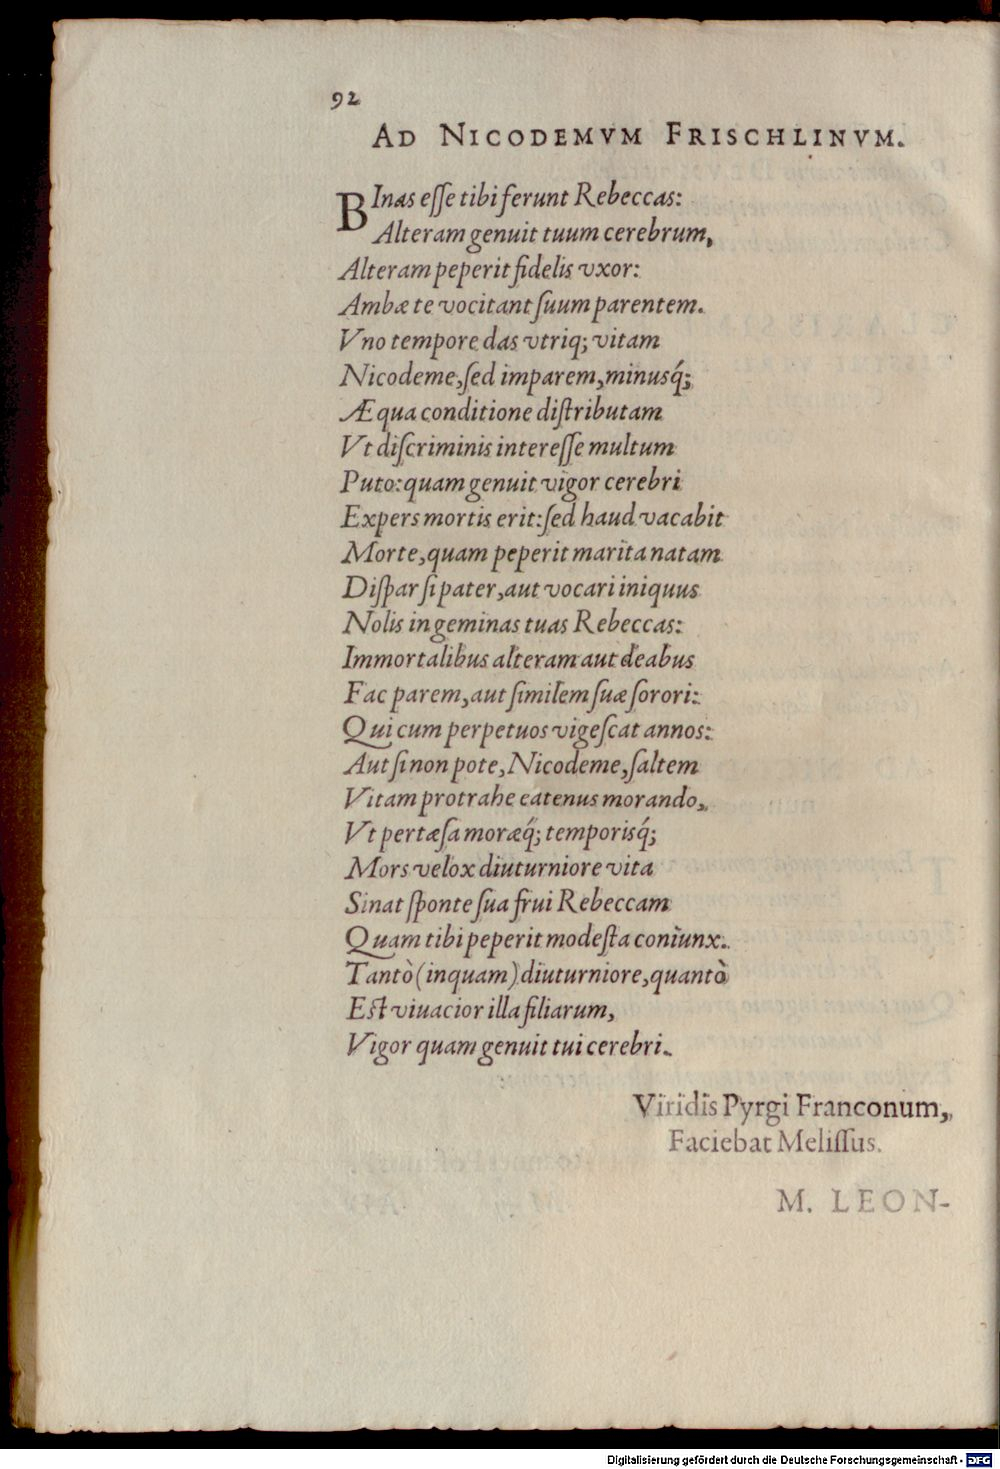 92
AD NICODEMVM FRISCHLINVM.
BInas eſſe tibi ferunt Rebeccas:
Alteram genuit tuum cerebrum,
Alteram peperit fidelis vxor:
Ambæ te vocitant ſuum parentem.
Vno tempore das vtriq; vitam
Nicodeme, ſed imparem, minusq́;
Æqua conditione diſtributam
Vt diſcriminis intereſſe multum
Puto: quam genuit vigor cerebri
Expers mortis erit: ſed haud vacabit
Morte, quam peperit marita natam
Diſpar ſi pater, aut vocari iniquus
Nolis in geminas tuas Rebeccas:
Immortalibus alteram aut deabus
Fac parem, aut ſimilem ſuæ ſorori:
Qui cum perpetuos vigeſcat annos:
Aut ſi non pote, Nicodeme, ſaltem
Vitam protrahe eatenus morando,
Vt pertæſa moræq́; temporisq́;
Mors velox diuturniore vita
Sinat ſponte ſua frui Rebeccam
Quam tibi peperit modeſta coniunx.
Tantò (inquam) diuturniore, quantò
Eſt viuacior illa filiarum,
Vigor quam genuit tui cerebri.
Viridis Pyrgi Franconum,
Faciebat Meliſſus.
M. LEON-
Digitalisierung gefördert durch die Deutsche Forschungsgemeinschaft - DFG